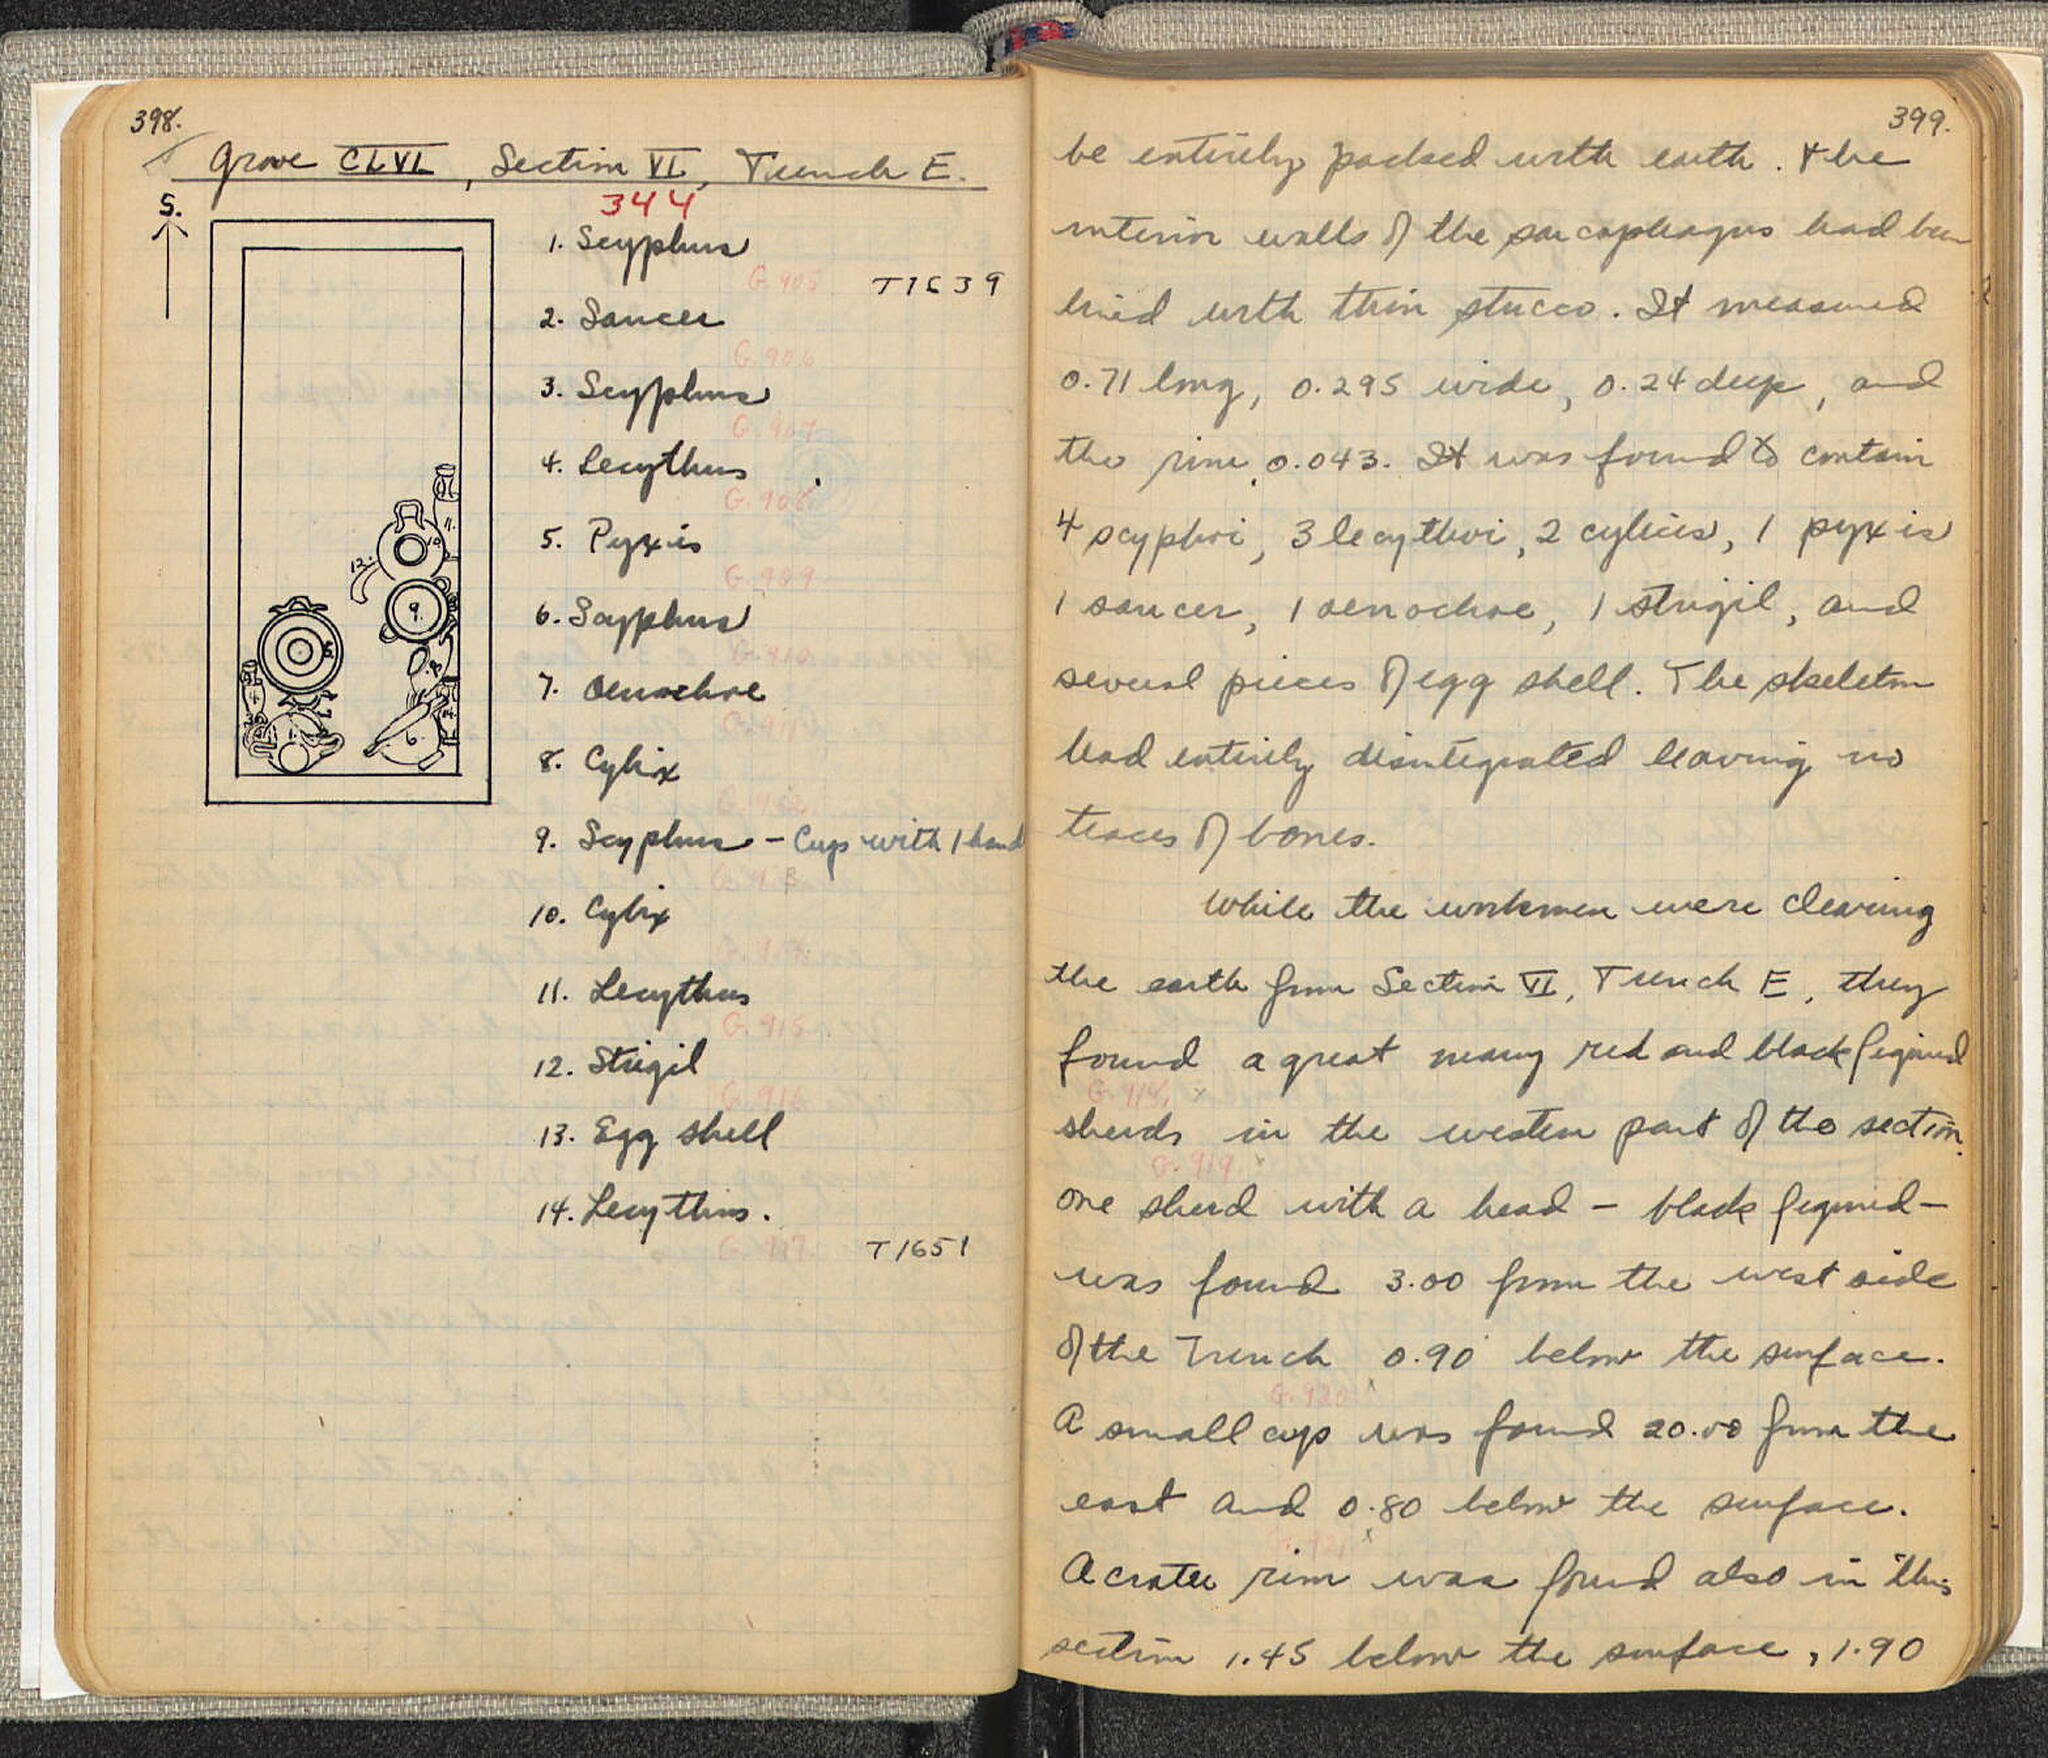 398.
Grave CLVI, Section VI, Trench E.
344
S.
1. Scyphus
G.905 T1639
2. Saucer
G.906
3. Scyphus
G.907
4. Lecythus
G.908
5. Pyxis
G.909
6. Scyphus
G.910
7. Oenochoe
G.911
8. Cylix
G.912
9. Scyphus – Cup with 1 hand
G.913
10. Cylix
G.914
11. Lecythus
G.915
12. Strigil
G.916
13. Egg shell
14. Lecythus.
G.917 T1651
10
11.
12.
9.
4
1
6
14.
399.
be entirely packed with earth. The
interior walls of the sarcophagus had been
lined with thin stucco. It measured
0.71 long, 0.295 wide, 0.24 deep, and
the rim 0.043. It was found to contain
4 scyphoi, 3 lecythoi, 2 cylices, 1 pyxis
1 saucer, 1 oenochoe, 1 strigil, and
several pieces of egg shell. The skeleton
had entirely disintegrated leaving no
traces of bones.
While the workmen were clearing
the earth from Section VI, Trench E, they
found a great many red and black figured
G.918 x
sherds in the western part of the section.
G.919 x
One sherd with a head – black figured –
was found 3.00 from the west side
of the Trench 0.90 below the surface.
G.920 x
A small cup was found 20.00 from the
east and 0.80 below the surface.
G.921 x
A crater rim was found also in this
section 1.45 below the surface, 1.90